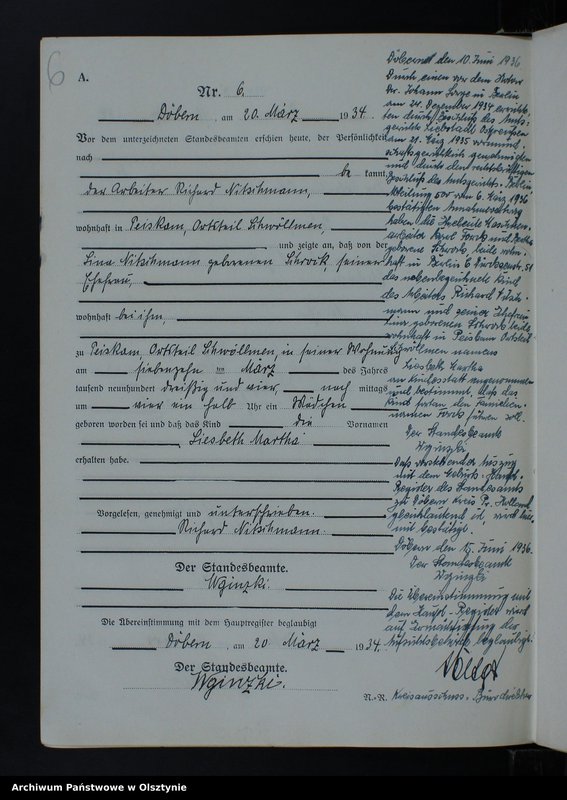 6
A.
Nr. 6.
Döbern, am 20. März 1934.
Vor dem unterzeichneten Standesbeamten erschien heute, der Persönlichkeit
nach
be kannt,
der Arbeiter Richard Nitschmann,
wohnhaft in Peiskam, Ortsteil Schwöllmen,
und zeigte an, daß von der
Lina Nitschmann geborenen Schwik, seiner
Ehefrau,
wohnhaft bei ihm,
zu Peiskam, Ortsteil Schwöllmen, in seiner Wohnung
am siebenzehn ten März des Jahres
tausend neunhundert dreißig und vier, nach mittags
um vier ein halb Uhr ein Mädchen
geboren worden sei und daß das Kind die Vornamen
Liesbeth Martha
erhalten habe.
Vorgelesen, genehmigt und unterschrieben.
Richard Nitschmann.
Der Standesbeamte.
Wginzki.
Die Übereinstimmung mit dem Hauptregister beglaubigt
Döbern, am 20 März 1934.
Der Standesbeamte.
Wginzki.
Döbern den 10. Juni 1936
Durch einen vor dem Notar
Dr. Johann in Berlin
am 24. Dezember 1934
durch Beschluß des Amts-
gerichts Liebstadt Ostpreußen
am 21. 1935
genehmigten
und durch den
Beschluß des Amtsgerichts Berlin
Abteilung vom 6. 1936
bestätigten
haben die Eheleute
arbeiter und
geborene beide wohn-
haft in Berlin 51
das nebenbezeichnete Kind
des Arbeiters Richard Nitsch-
mann und seiner Ehefrau
Lina geborenen beide
wohnhaft in Peiskam Ortsteil
Schwöllmen namens
Liesbeth Martha
an Kindesstatt angenommen
und bestimmt, daß das
Kind fortan den Familien-
namen führen soll.
Der Standesbeamte
Wginzki
Daß vorstehender Auszug
mit dem Geburts-Haupt-
Register des Standesamts
zu Döbern Kreis Pr. Holland
gleichlautend ist, wird hier-
mit bestätigt.
Döbern den 15. Juni 1936.
Der Standesbeamte
Wginzki
Die Übereinstimmung mit
dem Haupt-Register wird
auf der
beglaubigt.
N.-R. Kreisausschuss-
Archiwum Państwowe w Olsztynie